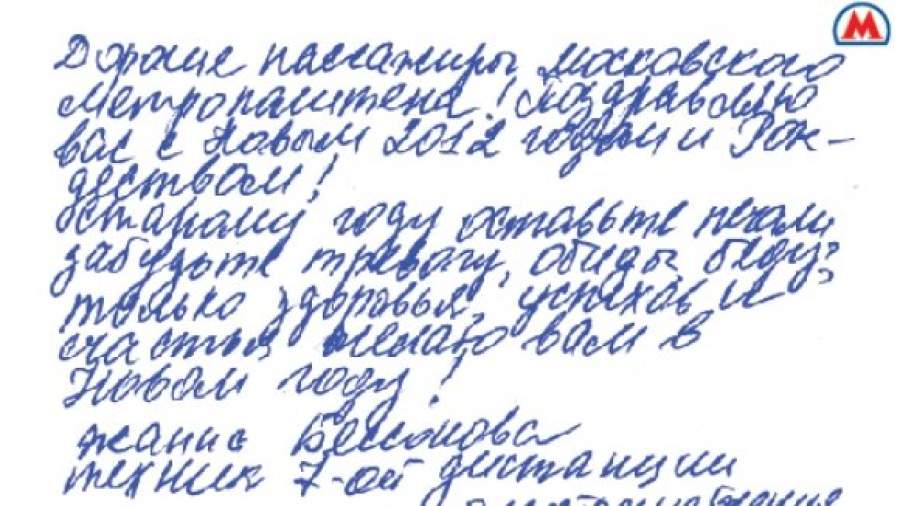 М
Дорогие пассажиры Московского
метрополитена! Поздравляю
вас с Новым 2012 годом и Рож-
деством!
Старому году оставьте печали
забудьте тревогу, обиды беду,
только здоровья, успехов и
счастья желаю вам в
Новом году!
Жанна Бессонова
техник 7-ой дистанции